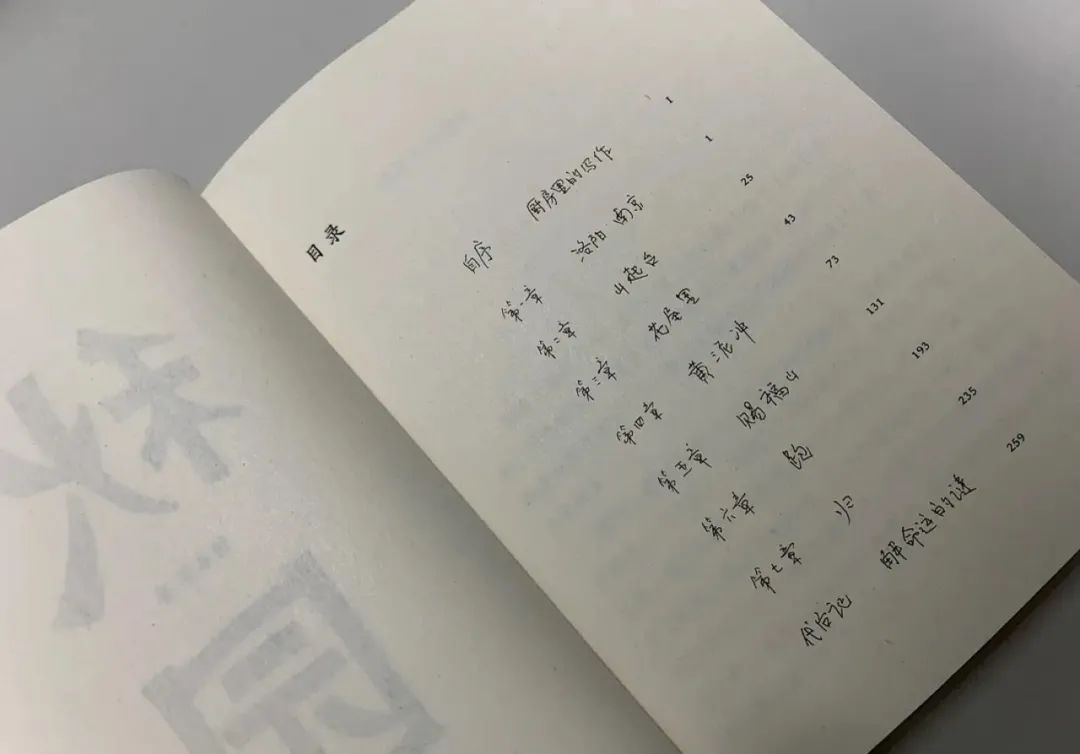 目录
自序 厨房里的写作 1
第一章 洛阳 南京 1
第二章 山起台 25
第三章 花屋里 43
第四章 黄泥冲 73
第五章 赐福山 131
第六章 跑 193
第七章 归 235
代后记 解命运的谜 259